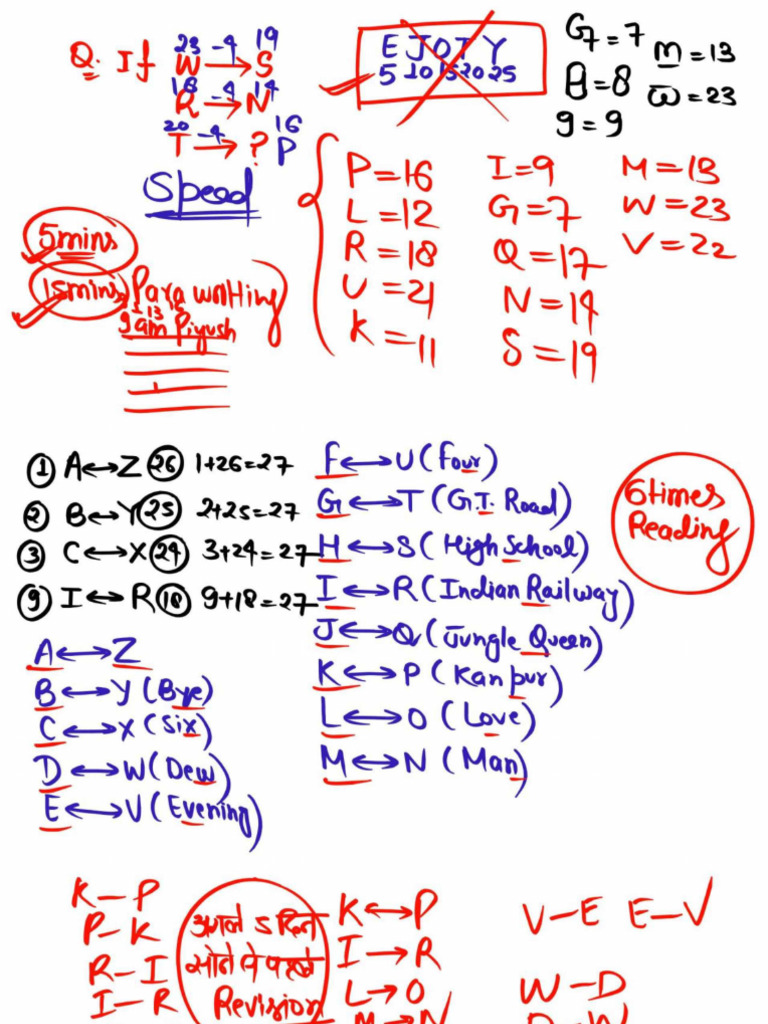 Q. If W → S
23 -4 19
R → N
18 -4 14
T → ? P
20 -4 16
Speed
E J O T Y
5 10 15 20 25
G = 7
7
H = 8
g = 9
m = 13
w = 23
5 mins
15 mins) Para writing
9 1 13 16
I am Piyush
P = 16
L = 12
R = 18
U = 21
K = 11
I = 9
G = 7
Q = 17
N = 14
S = 19
M = 13
W = 23
V = 22
① A ↔ Z ㉖ 1+26=27
② B ↔ Y ㉕ 2+25=27
③ C ↔ X ㉔ 3+24=27
⑨ I ↔ R ⑱ 9+18=27
A ↔ Z
B ↔ Y (Bye)
C ↔ X (Six)
D ↔ W (Dew)
E ↔ V (Evening)
F ↔ U (Four)
G ↔ T (G.T. Road)
H ↔ S (High School)
I ↔ R (Indian Railway)
J ↔ Q (Jungle Queen)
K ↔ P (Kanpur)
L ↔ O (Love)
M ↔ N (Man)
6 times
Reading
K – P
P – K
R – I
I – R
अगले 5 दिन
सोने से पहले
Revision
K ↔ P
I → R
L → O
M → N
V – E E – V
W – D
D – W